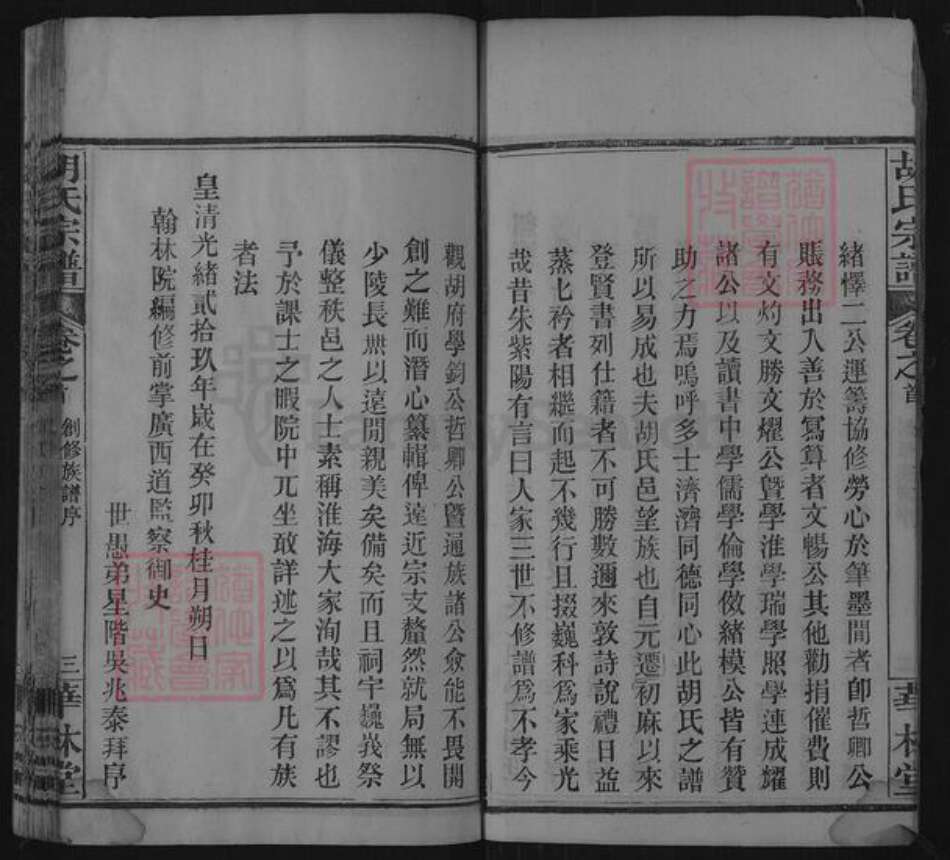 胡氏宗譜
卷之首
華林堂
緒懌二公運籌協修勞心於筆墨間者卽哲卿公
賬務出入善於寫算者文暢公其他勸捐催費則
有文灼文勝文燿公曁學淮學瑞學照學連成耀
諸公以及讀書中學儒學倫學倣緒模公皆有贊
助之力焉嗚呼多士濟濟同德同心此胡氏之譜
所以易成也夫胡氏邑望族也自元遷初麻以來
登賢書列仕籍者不可勝數邇來敦詩說禮日益
蒸七衿者相繼而起不幾行且掇巍科爲家乘光
哉昔朱紫陽有言曰人家三世不修譜爲不孝今
觀胡府學鈞公哲卿公曁通族諸公僉能不畏開
創之難而潛心纂輯俾遠近宗支釐然就局無以
少陵長無以遠閒親美矣備矣而且祠宇巍峩祭
儀整秩邑之人士素稱淮海大家洵哉其不謬也
予於課士之暇院中兀坐敢詳述之以爲凡有族
者法
皇清光緒貳拾玖年歲在癸卯秋桂月朔日
翰林院編修前掌廣西道監察御史
世愚弟星階吳兆泰拜序
胡氏宗譜
卷之首
創修族譜序
三
華林堂
FamilySearch